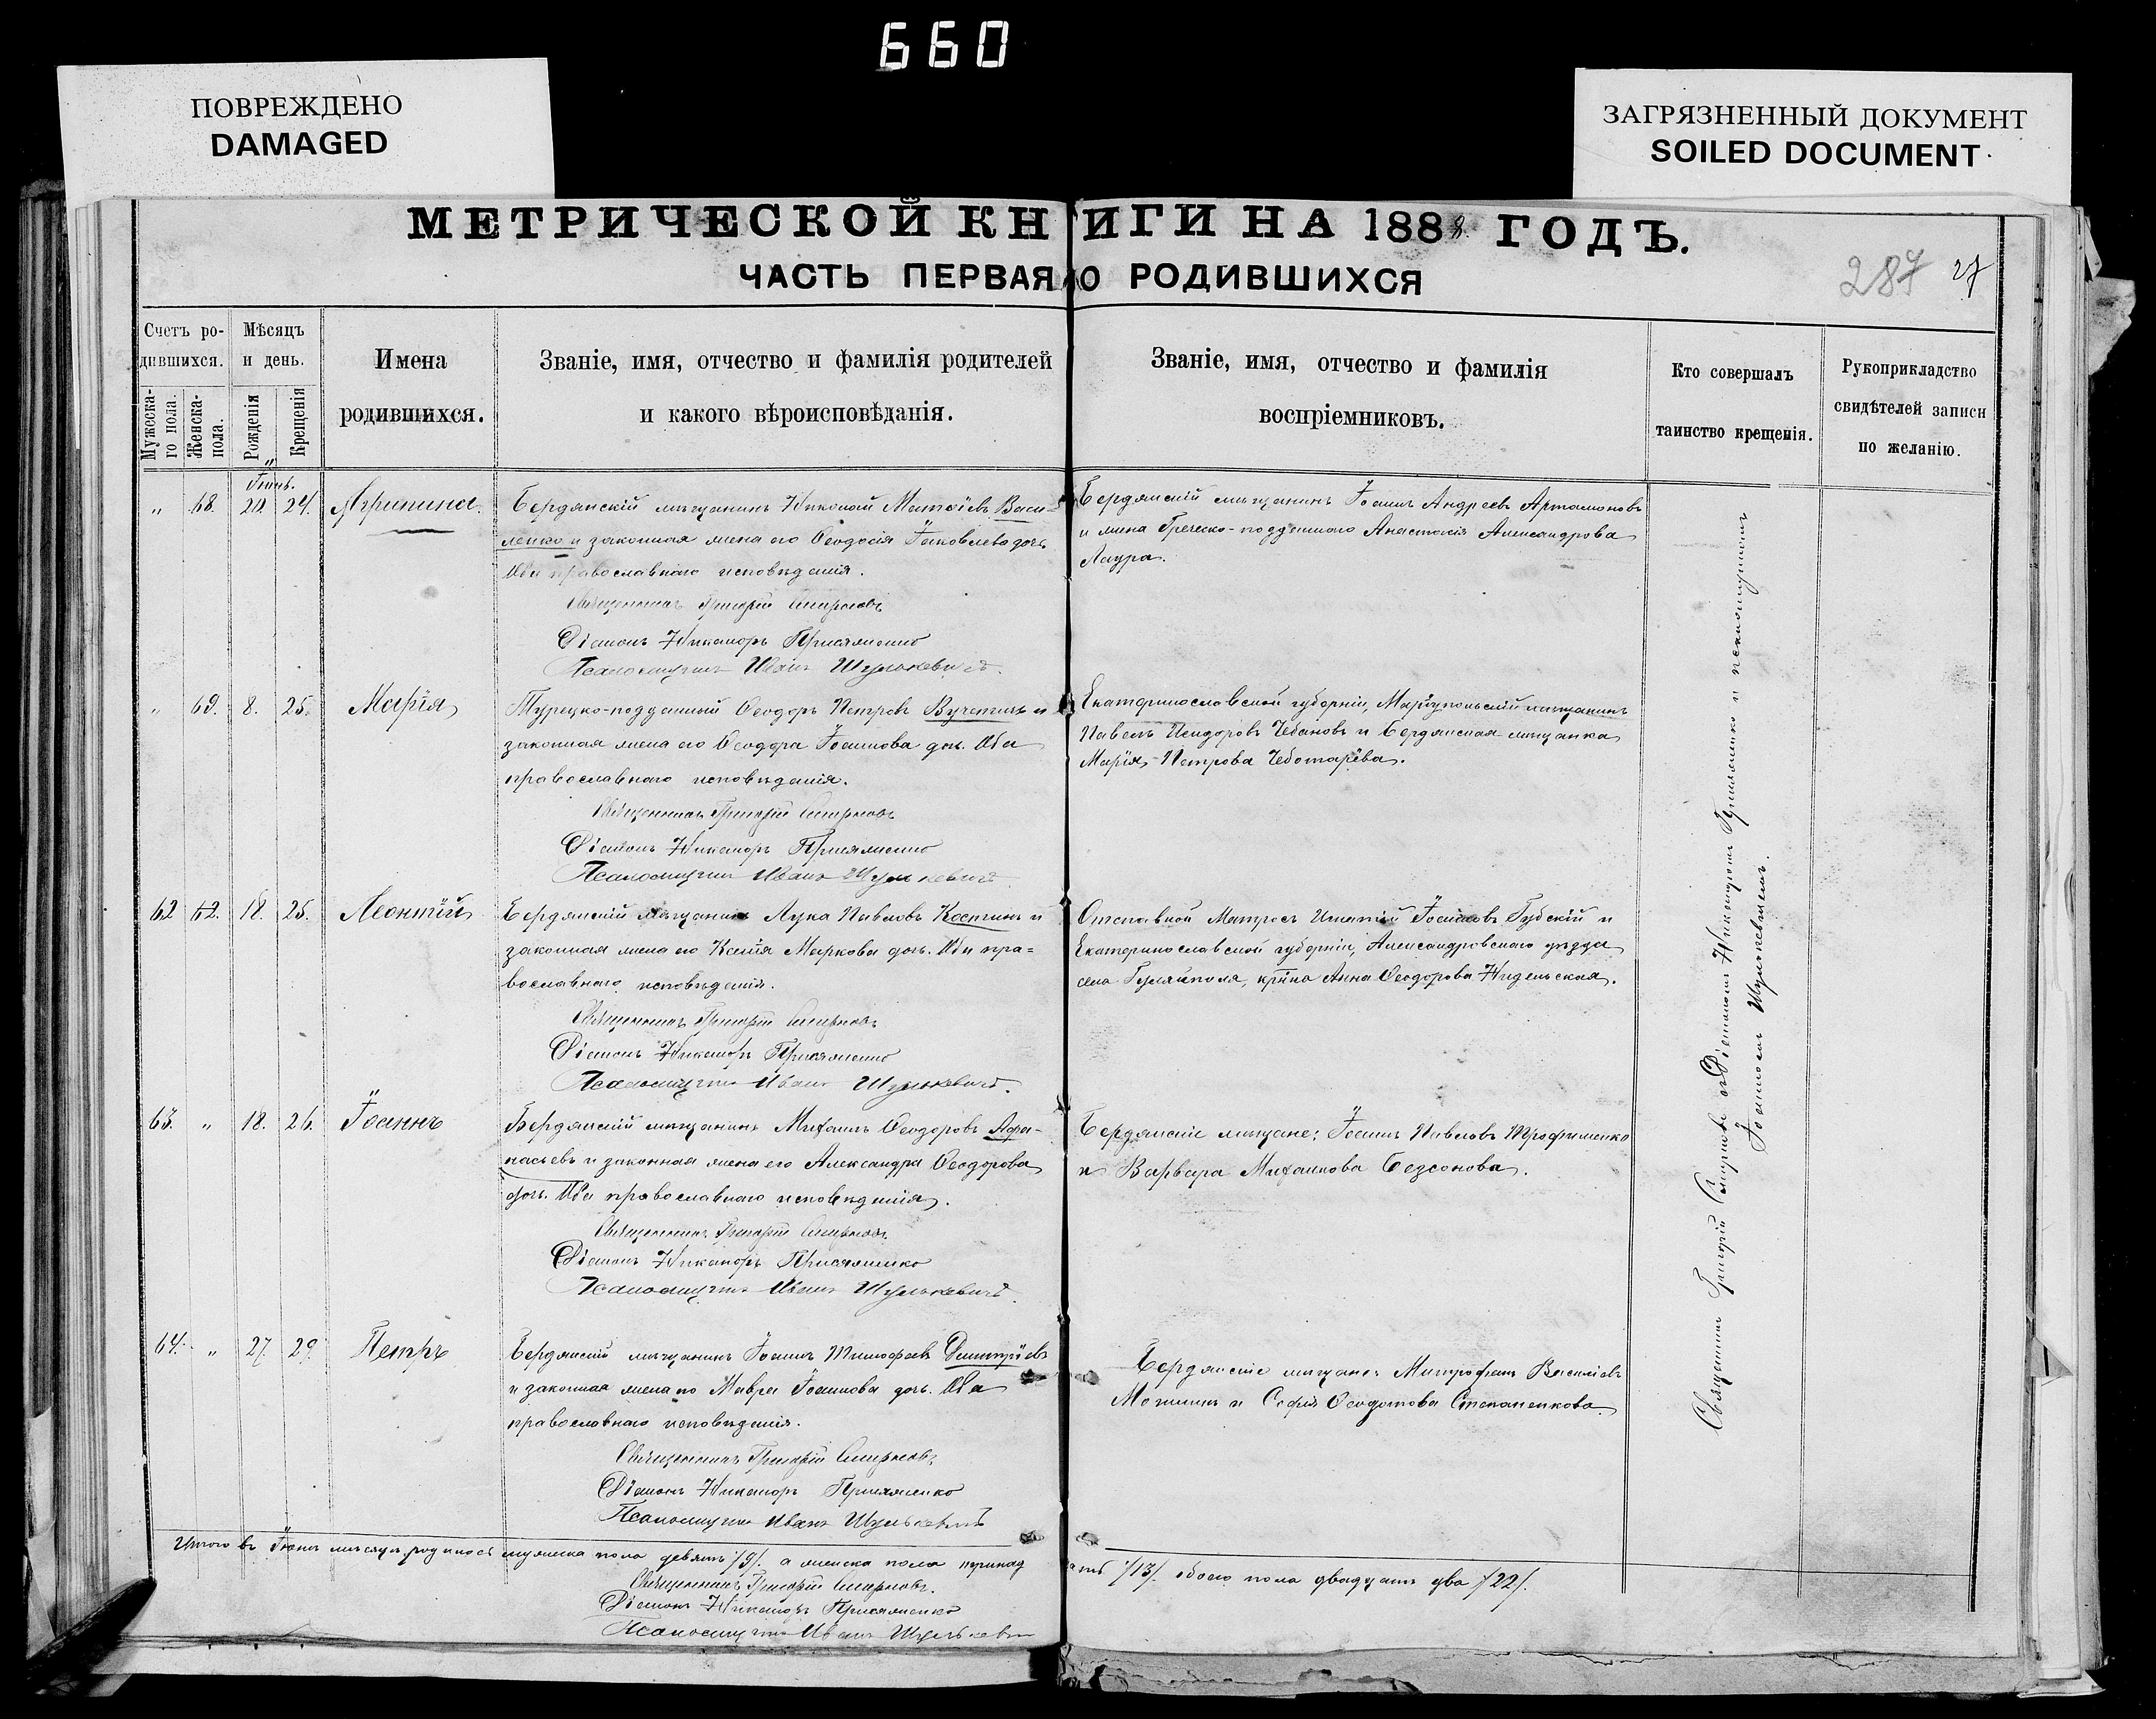 660
ПОВРЕЖДЕНО
DAMAGED
ЗАГРЯЗНЕННЫЙ ДОКУМЕНТ
SOILED DOCUMENT
МЕТРИЧЕСКОЙ КНИГИ НА 1888 ГОДЪ.
ЧАСТЬ ПЕРВАЯ, О РОДИВШИХСЯ
287 27
Счетъ ро-
дившихся.
Мужеска-
го пола.
Женска-
пола.
Мѣсяцъ
и день.
Рожденія
Крещенія
Имена
родившихся.
Званіе, имя, отчество и фамилія родителей
и какого вѣроисповѣданія.
Званіе, имя, отчество и фамилія
воспріемниковъ.
Кто совершалъ
таинство крещенія.
Рукоприкладство
свидѣтелей записи
по желанію.
Іюнь.
„ 68. 20. 24. Агрипина.
Бердянскій мѣщанинъ Николай Матѳіевъ Васи-
ленко и законная жена его Ѳеодосія Іаковлева дочь.
Оба православнаго исповѣданія.
Священникъ Григорій Смирновъ
Діаконъ Никаноръ Присяженко
Псаломщикъ Иванъ Шулькевичъ.
Бердянскій мѣщанинъ Іоаннъ Андреевъ Артамоновъ
и жена Греческо-подданнаго Анастасія Александрова
Лаура.
„ 69. 8. 25. Марія
Турецко-подданный Ѳеодоръ Петровъ Вучетичъ и
законная жена его Ѳеодора Іоаннова доч. Оба
православнаго исповѣданія.
Священникъ Григорій Смирновъ
Діаконъ Никаноръ Присяженко
Псаломщикъ Иванъ Шулькевичъ
Екатеринославской губерніи, Маріупольскій мѣщанинъ
Павелъ Исидоровъ Чебановъ и Бердянская мѣщанка
Марія Петрова Чеботарева.
62 62. 18. 25. Леонтій
Бердянскій мѣщанинъ Лука Павловъ Костинъ и
законная жена его Ксенія Маркова доч. Оба пра-
вославнаго исповѣданія.
Священникъ Григорій Смирновъ
Діаконъ Никаноръ Присяженко
Псаломщикъ Иванъ Шулькевичъ.
Отставной Матросъ Игнатій Іоанновъ Губскій и
Екатеринославской губерніи, Александровскаго уѣзда
села Гуляйполя, кр-нка Анна Ѳеодорова Нидельская.
63. „ 18. 26. Іоаннъ
Бердянскій мѣщанинъ Михаилъ Ѳеодоровъ Афа-
насьевъ и законная жена его Александра Ѳеодорова
доч. Оба православнаго исповѣданія.
Священникъ Григорій Смирновъ
Діаконъ Никаноръ Присяженко
Псаломщикъ Иванъ Шулькевичъ.
Бердянскіе мѣщане: Іоаннъ Павловъ Трофименко
и Варвара Михаилова Безсонова.
64. „ 27. 29. Петръ
Бердянскій мѣщанинъ Іоаннъ Тимофеевъ Димитріевъ
и законная жена его Мавра Іоаннова доч. Оба
православнаго исповѣданія.
Священникъ Григорій Смирновъ
Діаконъ Никаноръ Присяженко
Псаломщикъ Иванъ Шулькевичъ
Бердянскіе мѣщане: Митрофанъ Василіевъ
и Софія Ѳеодотова Степаненкова.
Священникъ Григорій Смирновъ съ Діакономъ Никаноромъ Присяженко и псаломщикомъ
Іоанномъ Шулькевичемъ.
Итого въ Іюнѣ мѣсяцѣ родилось мужеска пола девять /9/. а женска пола тринад
цать /13/. обоего пола двадцать два /22/.
Священникъ Григорій Смирновъ.
Діаконъ Никаноръ Присяженко
Псаломщикъ Иванъ Шулькеви